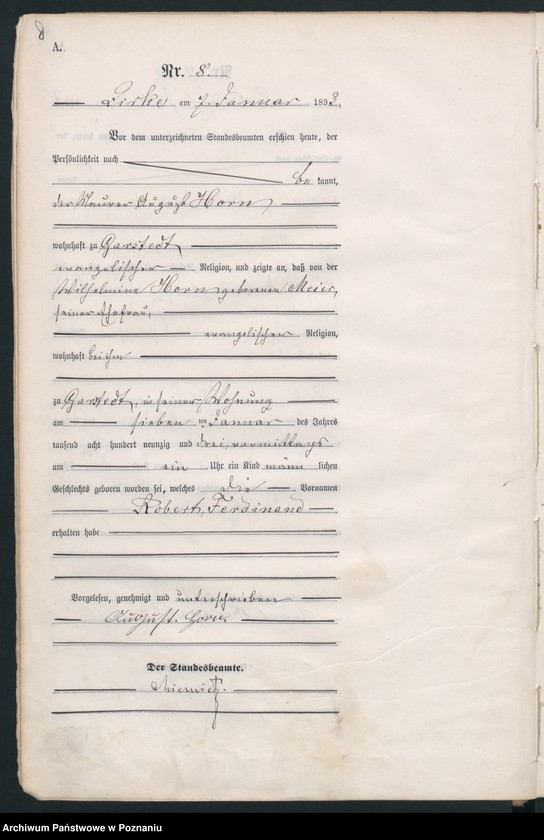 8
A.
Nr. 8.
Zirke am 7. Januar 1893.
Vor dem unterzeichneten Standesbeamten erschien heute, der
Persönlichkeit nach
be kannt,
der Maurer August Horn
wohnhaft zu Garstedt
evangelischer Religion, und zeigte an, daß von der
Wilhelmine Horn geborenen Meier,
seiner Ehefrau,
evangelischer Religion,
wohnhaft bei ihm
zu Garstedt, in seiner Wohnung
am sieben ten Januar des Jahres
tausend acht hundert neunzig und drei, vormittags
um ein Uhr ein Kind männ lichen
Geschlechts geboren worden sei, welches die Vornamen
Robert, Ferdinand
erhalten habe
Vorgelesen, genehmigt und unterschrieben
August. Horn.
Der Standesbeamte.
Archiwum Państwowe w Poznaniu